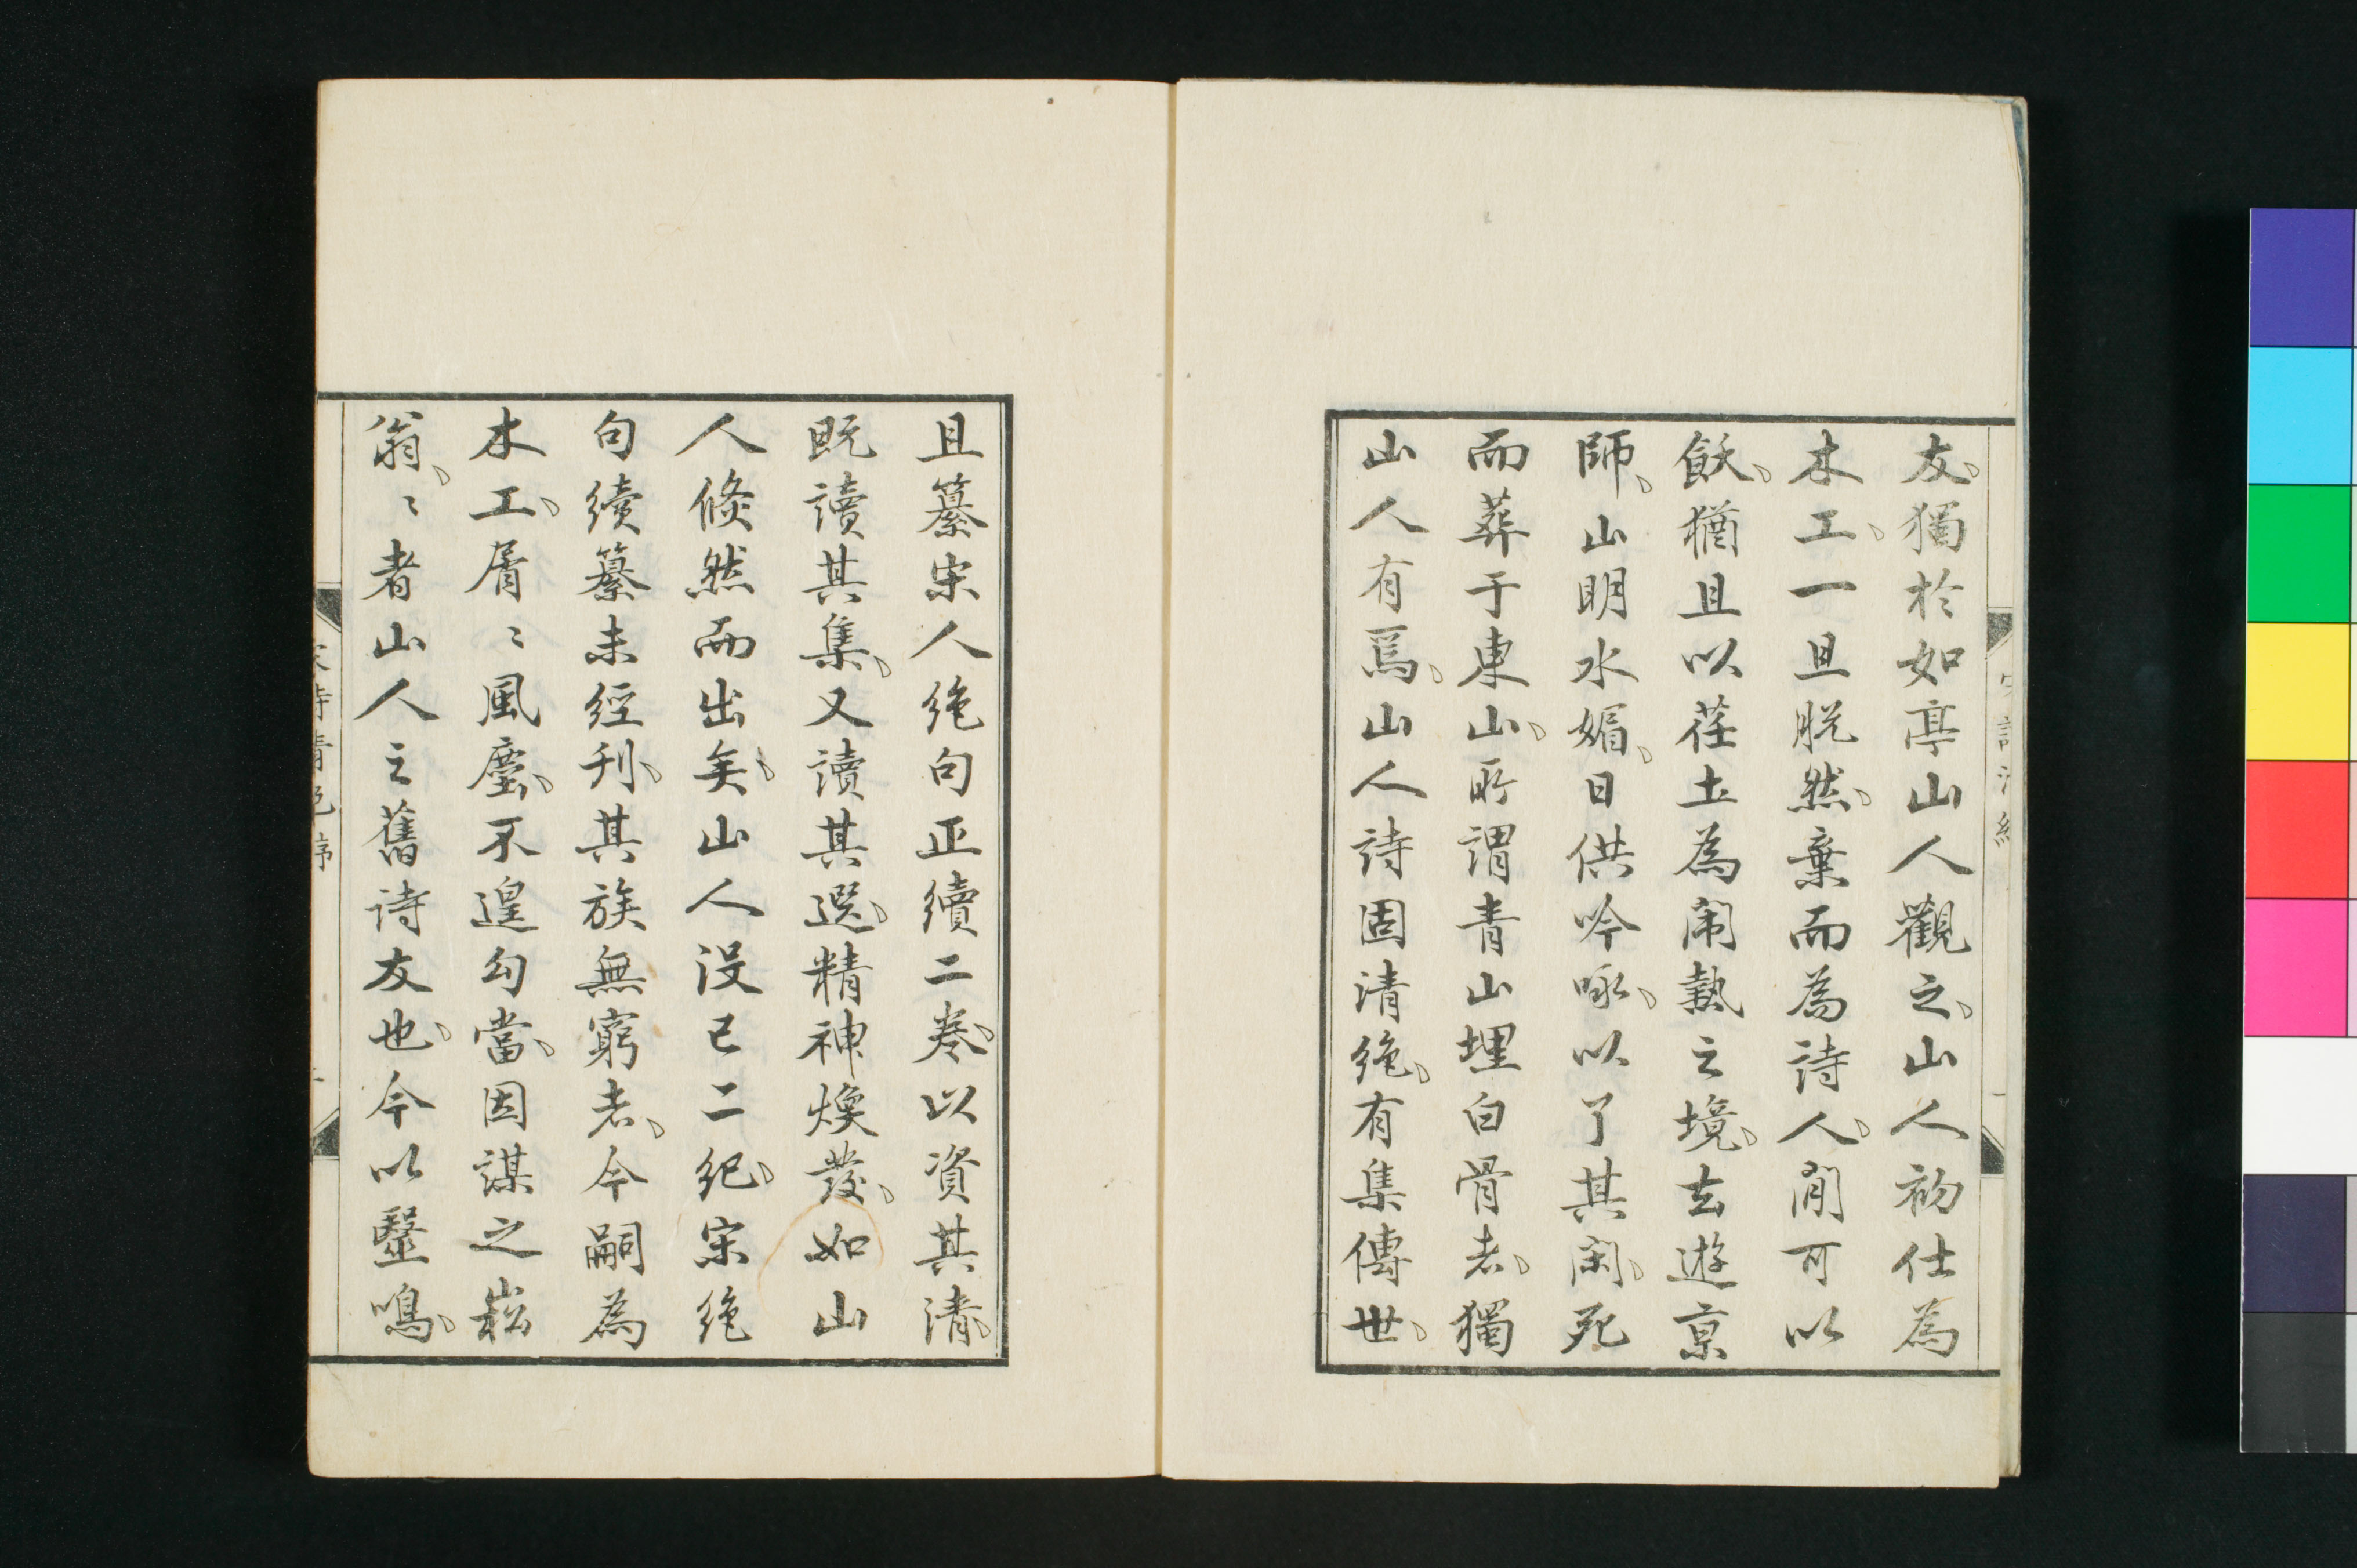 友、獨於如亭山人觀之、山人初仕為
木工、一旦脫然、棄而為詩人、閒可以
飫、猶且以荏土為閙熱之境、去遊京
師、山明水媚、日供吟咏、以了其閑、死
而葬于東山、所謂青山埋白骨者、獨
山人有焉、山人詩固清絶、有集傳世、
且纂宋人絶句正續二卷、以資其清、
既讀其集、又讀其選、精神煥發、如山
人倏然而出矣、山人沒已二紀、宋絶
句續纂未經刊、其族無窮者、今嗣為
木工、屑〻風塵、不遑勾當、因謀之崧
翁、〻者山人之舊詩友也、今以毉鳴、